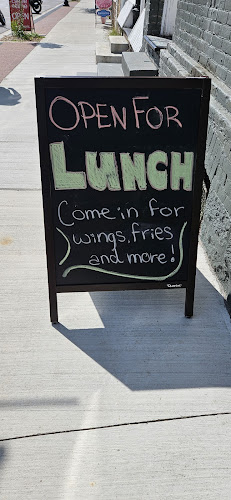 OPEN FOR
LUNCH
Come in for
wings, fries
and more!